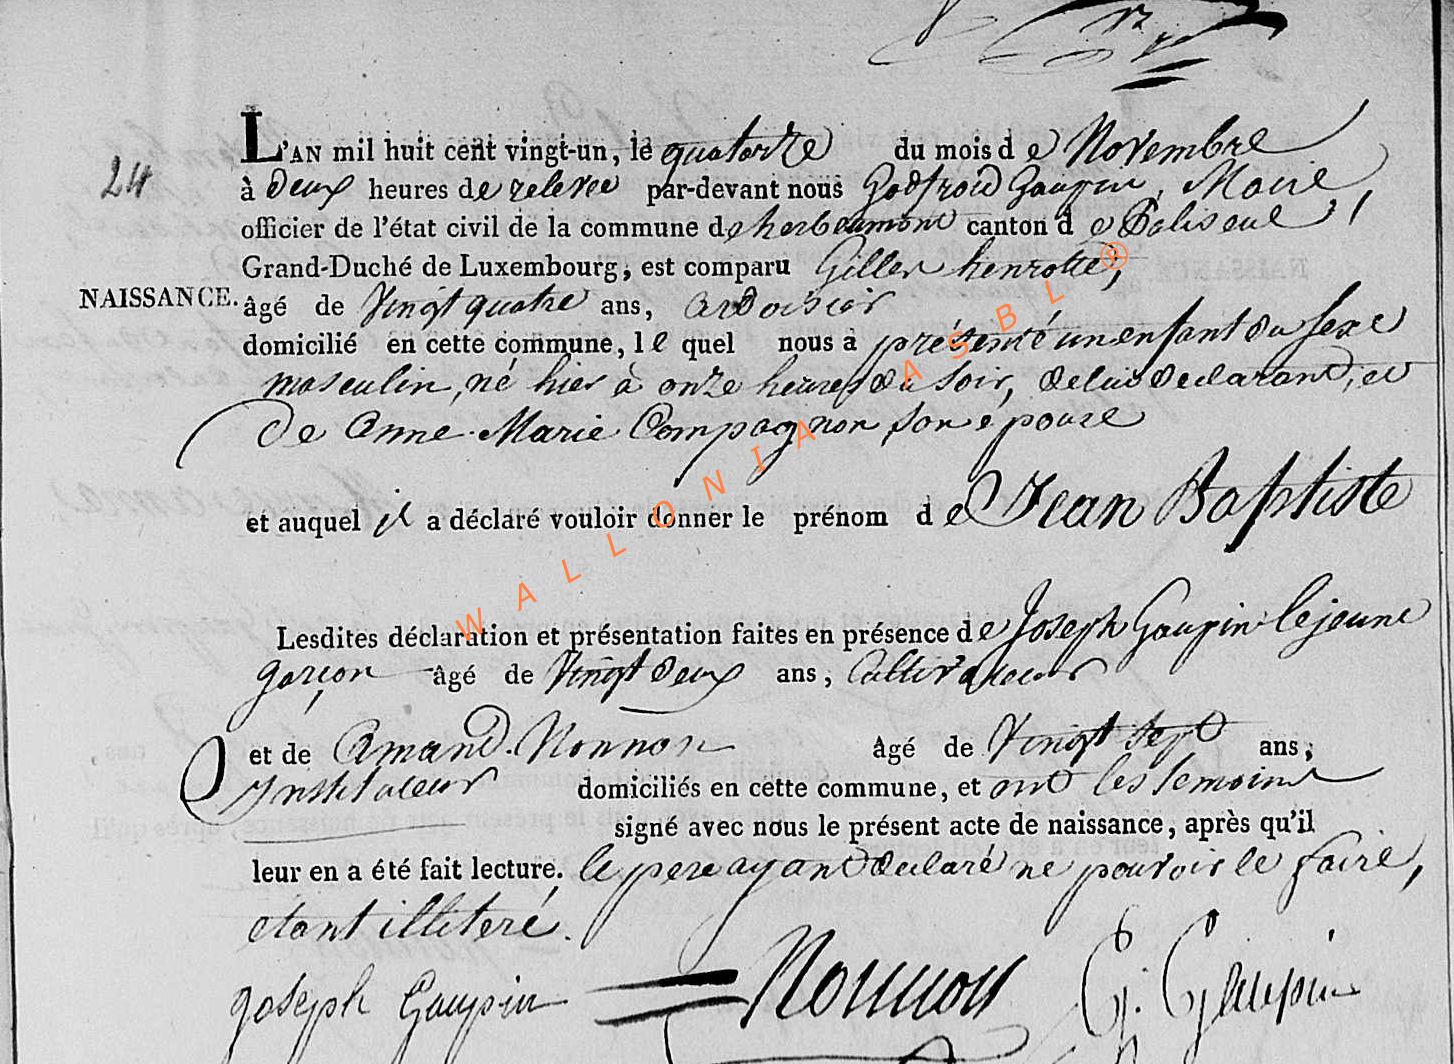 24
L'AN mil huit cent vingt-un, le quatorze du mois de Novembre
à deux heures de relevée par-devant nous Godfroid Gaupin, Maire,
officier de l'état civil de la commune de herbeumont canton de Paliseul,
Grand-Duché de Luxembourg, est comparu Gilles henrotte,
NAISSANCE. âgé de Vingt quatre ans, ardoisier
domicilié en cette commune, le quel nous a présenté un enfant du sexe
masculin, né hier à onze heures du soir, de lui declarant, et
de Anne Marie Compagnon son épouse
et auquel il a déclaré vouloir donner le prénom de Jean Baptiste
Lesdites déclaration et présentation faites en présence de Joseph Gaupin lejeune
garçon âgé de Vingt deux ans, Cultivateur
et de Amand Nonnon âgé de Vingt sept ans,
Instituteur domiciliés en cette commune, et ont les temoins
signé avec nous le présent acte de naissance, après qu'il
leur en a été fait lecture. le pere ayant declaré ne pouvoir le faire,
etant illiteré.
Joseph Gaupin Nonnon G. Gaupin
WALLONIA ASBL ®